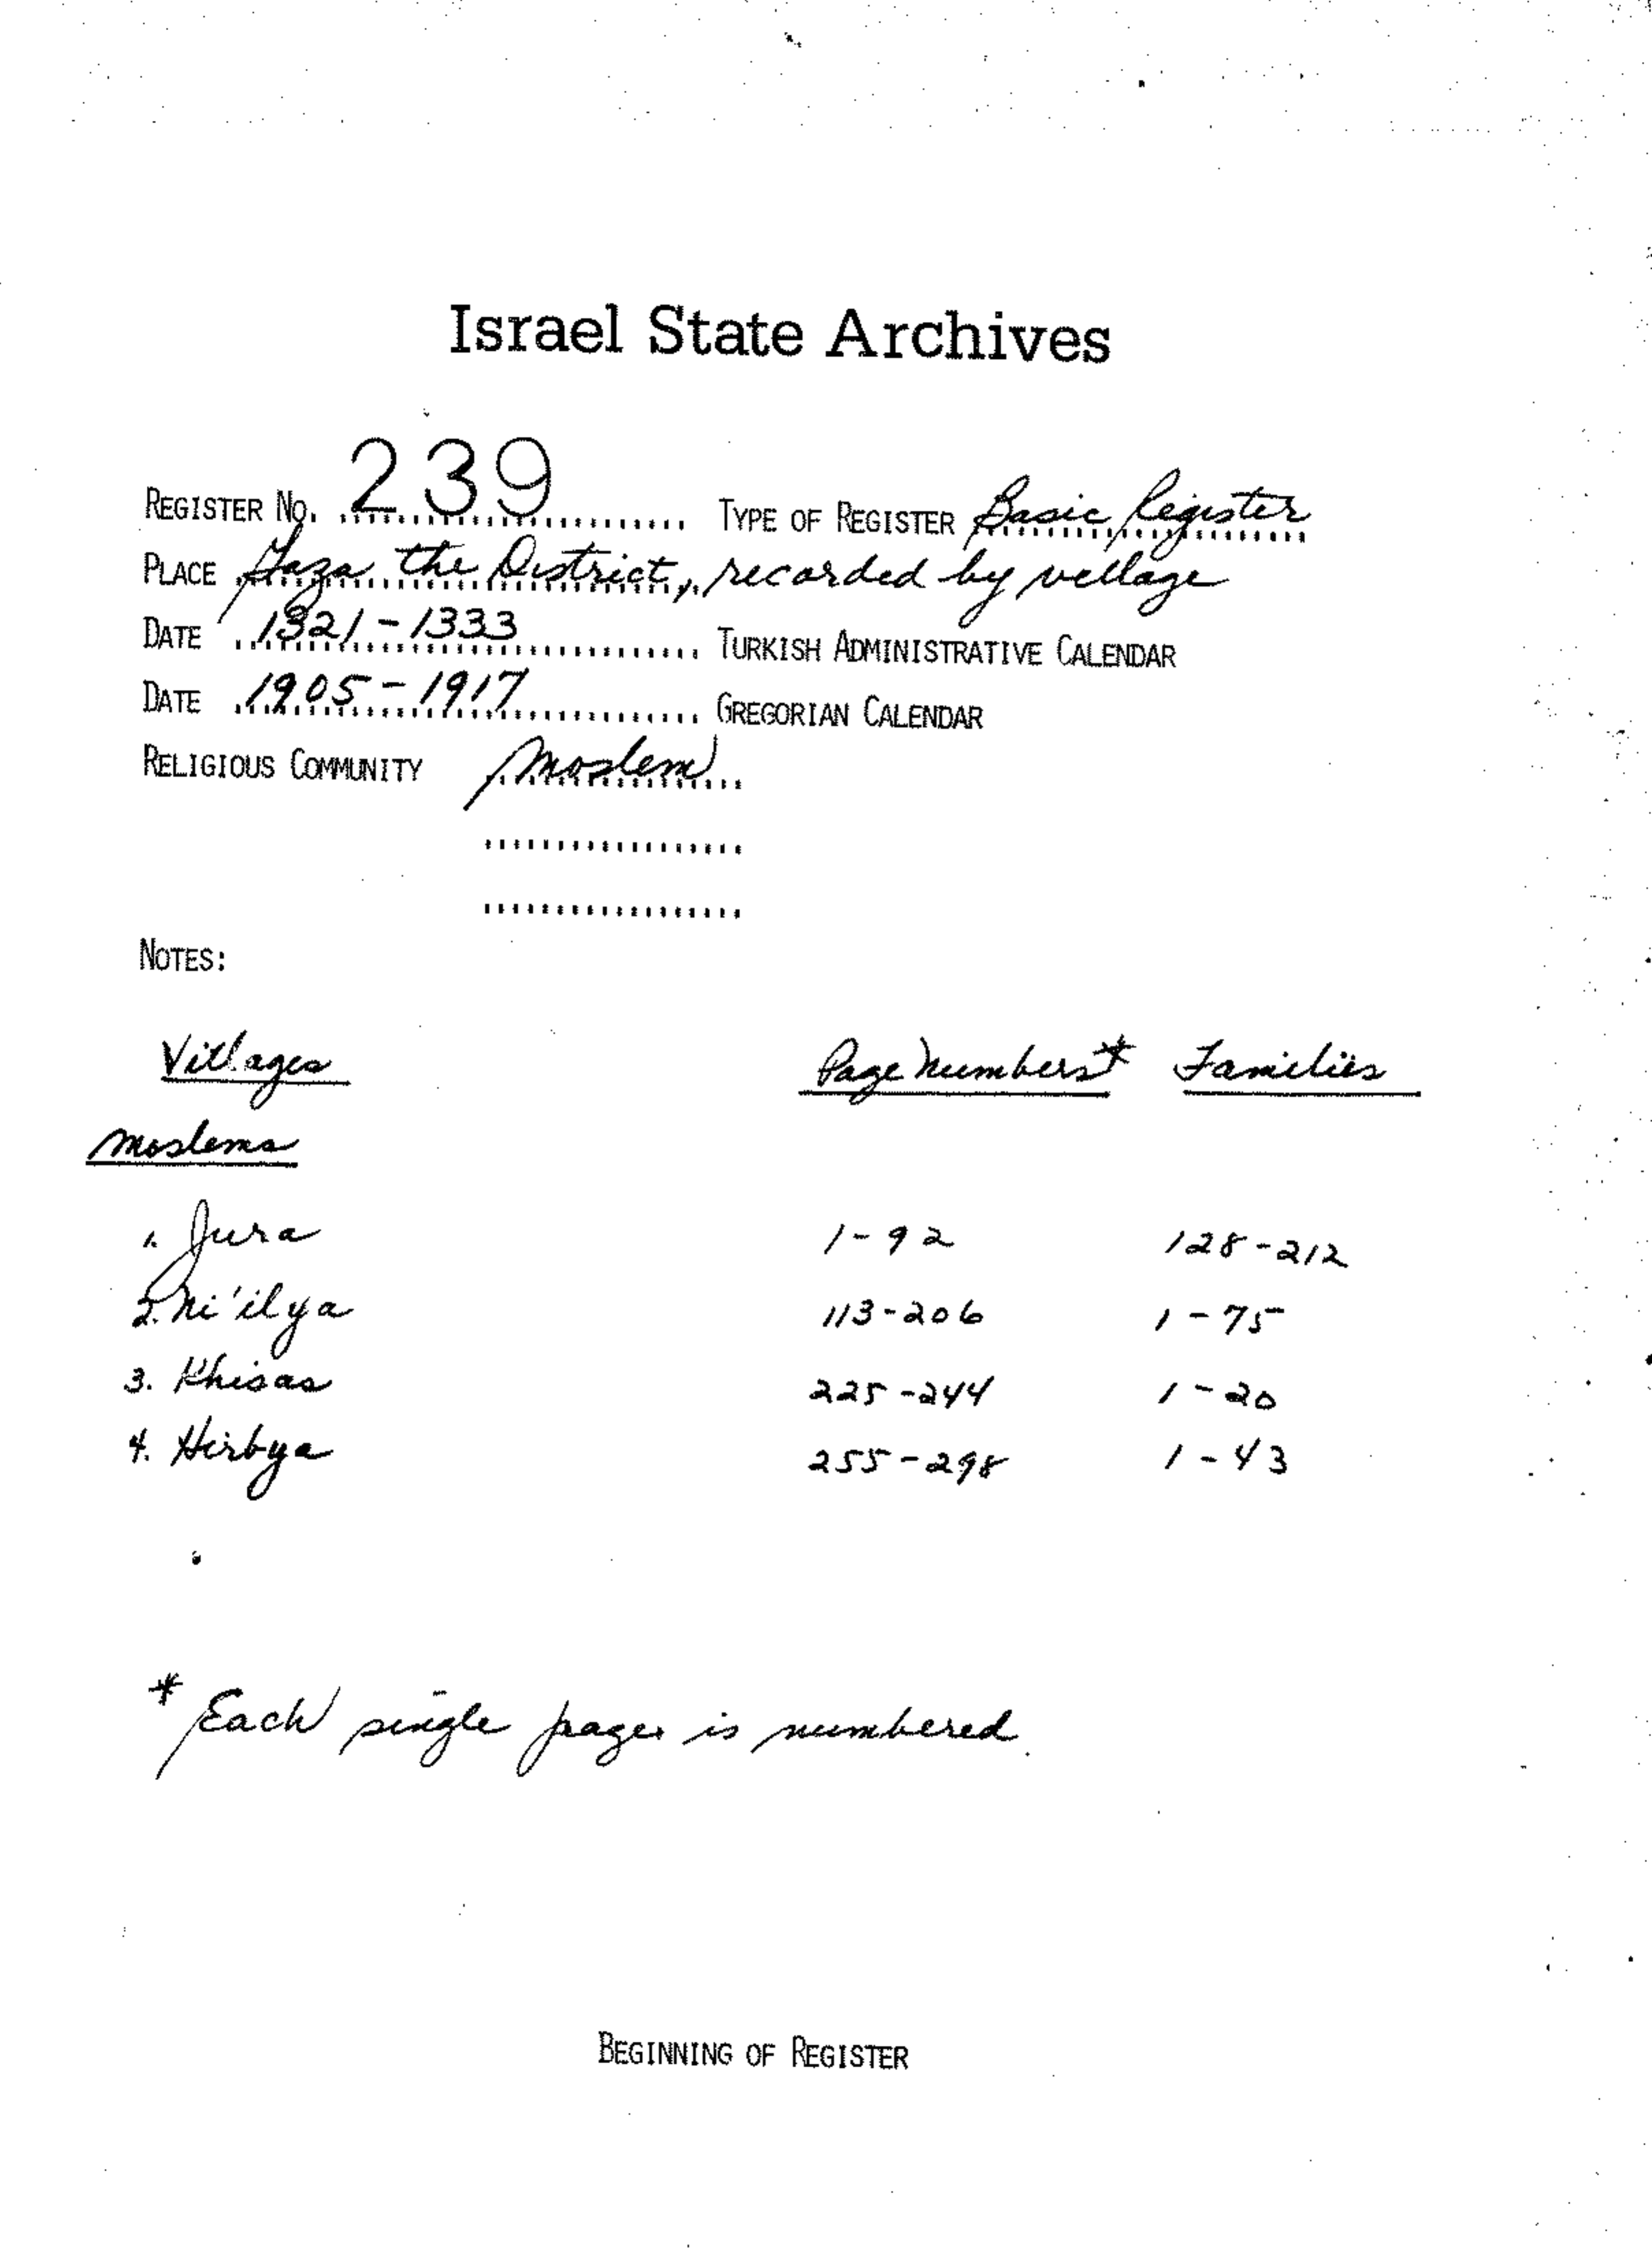 Israel State Archives
REGISTER NO. 239 TYPE OF REGISTER Basic Register
PLACE Gaza the District, recorded by village
DATE 1321-1333 TURKISH ADMINISTRATIVE CALENDAR
DATE 1905-1917 GREGORIAN CALENDAR
RELIGIOUS COMMUNITY Moslem
NOTES:
Villages Page Numbers* Families
Moslems
1. Jura 1-92 128-212
2. Ni'ilya 113-206 1-75
3. Khisas 225-244 1-20
4. Hirbya 255-298 1-43
* Each single pages is numbered.
BEGINNING OF REGISTER